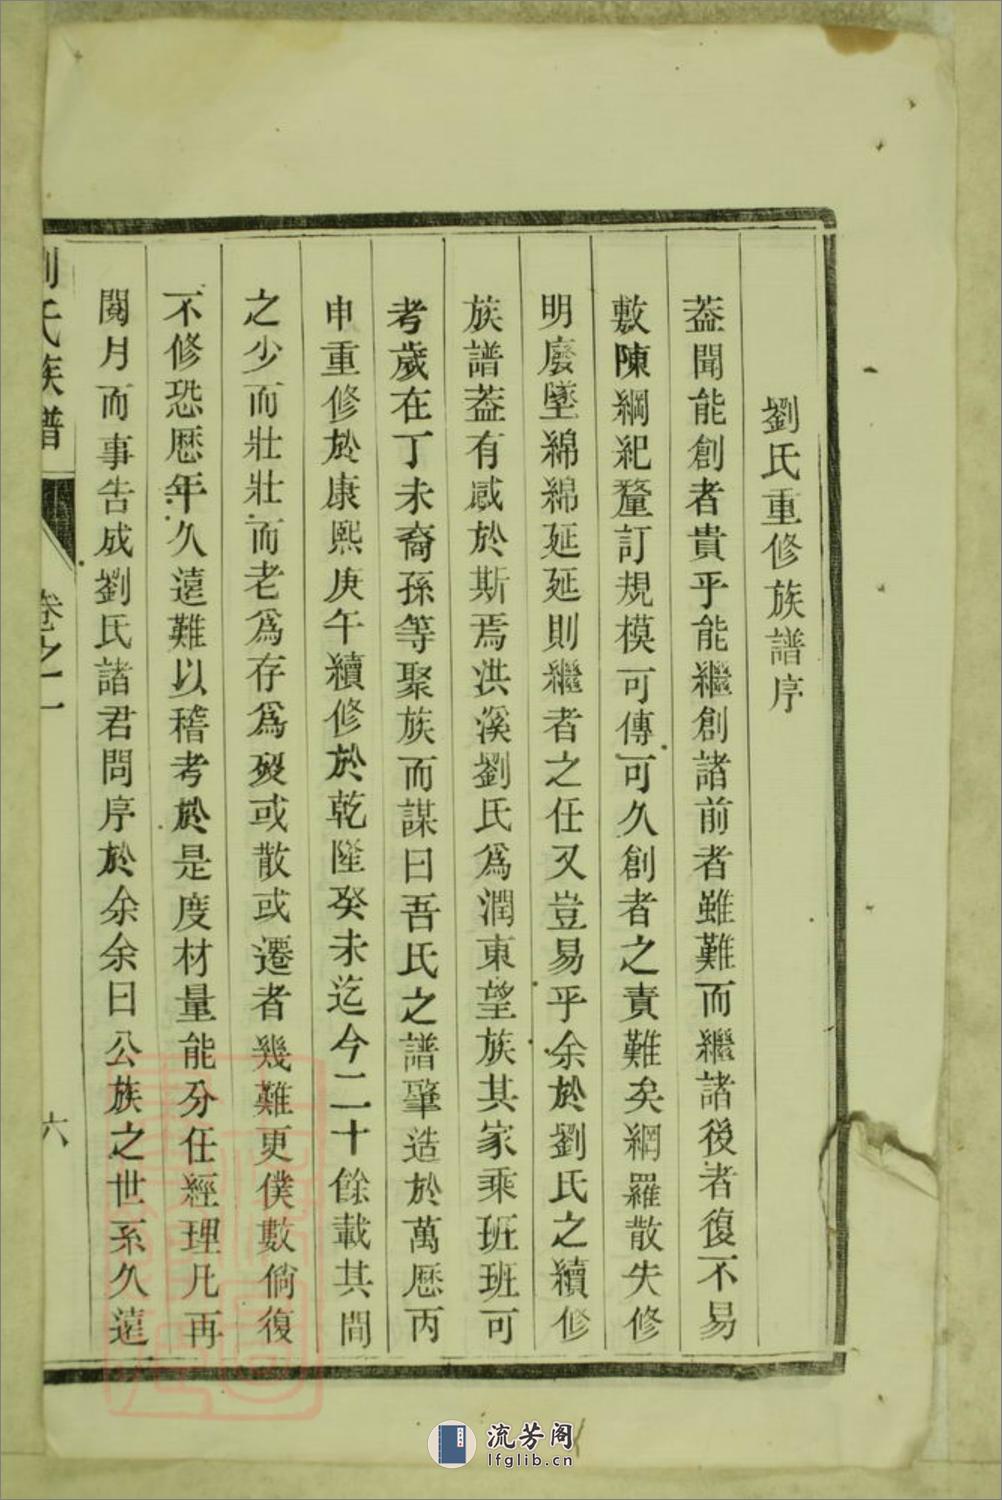 劉氏重修族譜序
葢聞能創者貴乎能繼創諸前者雖難而繼諸後者復不易
敷陳綱紀釐訂規模可傳可久創者之責難矣網羅散失修
明廢墜綿綿延延則繼者之任又豈易乎余於劉氏之續修
族譜葢有感於斯焉洪溪劉氏為潤東望族其家乘班班可
考歲在丁未裔孫等聚族而謀曰吾氏之譜肇造於萬厯丙
申重修於康熙庚午續修於乾隆癸未迄今二十餘載其間
之少而壯壯而老為存為歿或散或遷者幾難更僕數倘復
不修恐厯年久遠難以稽考於是度材量能分任經理凡再
閱月而事告成劉氏諸君問序於余余曰公族之世系久遠
劉氏族譜
卷之一
六
流芳阁
lfglib.cn